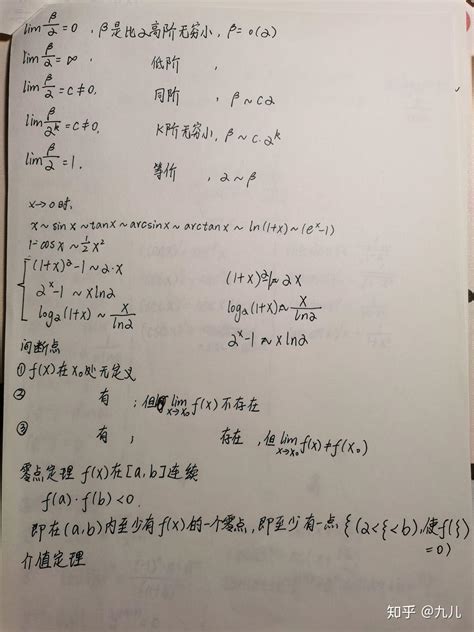 lim β/α = 0 , β是比α高阶无穷小, β = o(α)
lim β/α = ∞ 低阶 ,
lim β/α = c ≠ 0. 同阶 , β ~ cα
lim β/α^k = c ≠ 0. k阶无穷小, β ~ c·α^k
lim β/α = 1. 等价 , α ~ β
x→0时,
x ~ sinx ~ tanx ~ arcsinx ~ arctanx ~ ln(1+x) ~ (e^x-1)
1-cosx ~ 1/2 x²
(1+x)^α - 1 ~ α·x (1+x)^α - 1 ≈ αx
α^x - 1 ~ xlnα logα(1+x) ≈ x/lnα
logα(1+x) ~ x/lnα α^x - 1 ≈ xlnα
间断点
① f(x)在x₀处无定义
② 有 ; 但 lim x→x₀ f(x)不存在
③ 有 ; 存在, 但 lim x→x₀ f(x) ≠ f(x₀)
零点定理 f(x)在[a,b]连续
f(a)·f(b)<0.
即在(a,b)内至少有f(x)的一个零点, 即至少有一点ξ(a<ξ<b), 使f(ξ)=0)
介值定理
知乎 @九儿